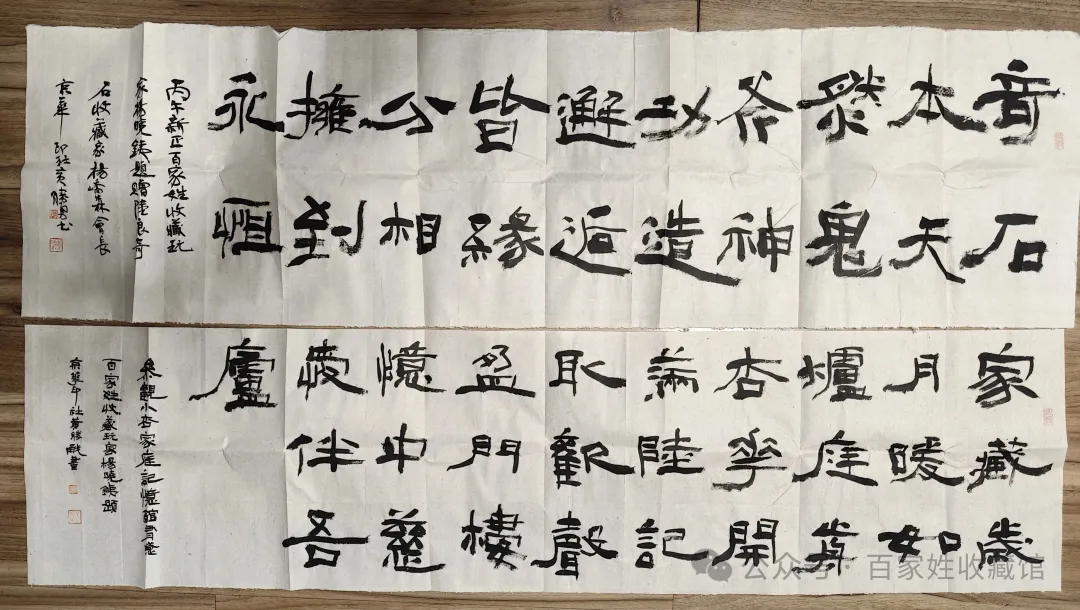 奇石
本天
然鬼
斧神
功造
邂逅
皆緣
分相
擁到
永恒
丙午新正百家姓收藏玩
家楊曉題贈陸良奇
石收藏家楊森會長
京華印社黃勝書
家藏歲
月暖如
爐庭前
杏華開
滿陸記
取歡聲
盈門樓
憶中慈
愛伴吾
廬
參觀小杏家庭記憶館有感
百家姓收藏玩家楊曉題
京華印社黃勝書
公众号 · 百家姓收藏馆